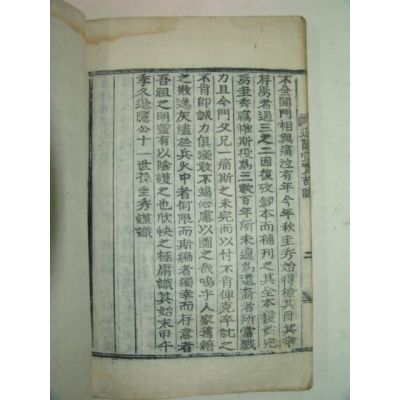 不全闔門相與痛泣有年今年秋圭秀始得檢其冊其幸
存焉者過三之二因復攷卸本而補刊之其全本復始完
焉圭秀竊惟斯役爲三數百年所未遑焉還裔者所當戮
力且今門父兄一痛斯之未完而以付不肖俾克卒就之
不肖卽誠力俱淺敢不竭心慮以圖之哉嗚乎人家舊籍
之散逸灰燼於兵火中者何限而斯編者獨幸而存意者
吾祖之明靈有以陰護之也欣快之極庸識其始末甲午
季冬退隱公十一世孫圭秀謹識